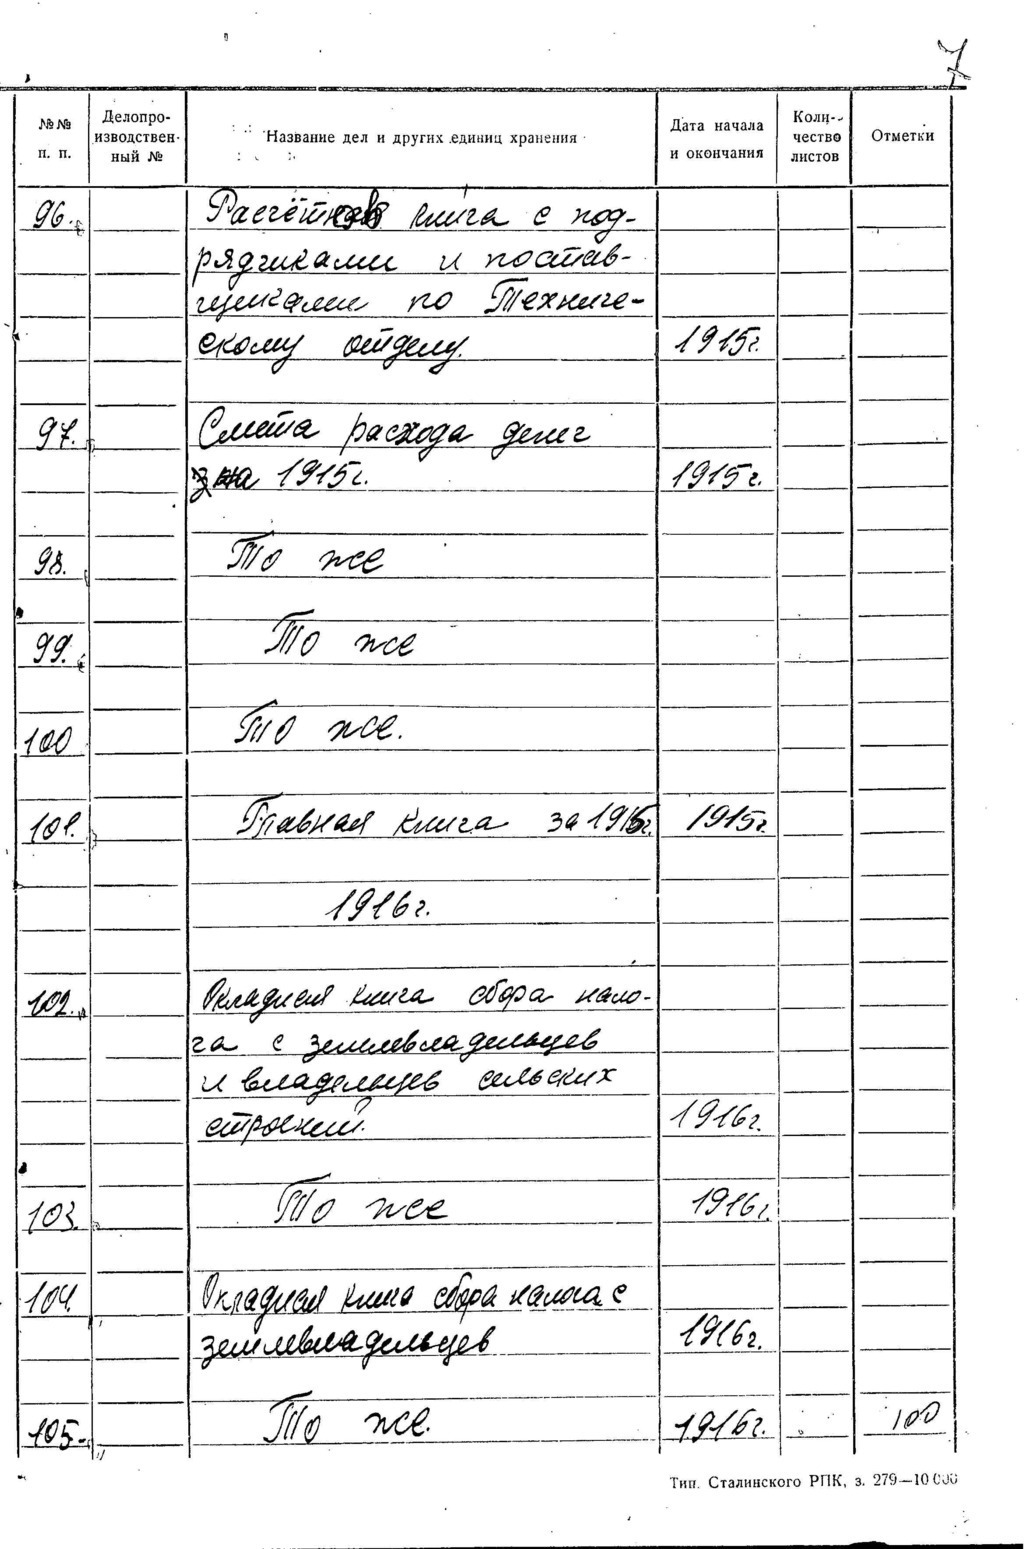 7
№№ п. п. Делопроизводственный № Название дел и других единиц хранения Дата начала и окончания Количество листов Отметки
96. Расчётная книга с под-
рядчиками и постав-
щиками по Техниче-
скому отделу. 1915г.
97. Смета расхода денег
на 1915г. 1915г.
98. То же
99. То же
100 То же.
101. Главная книга за 1915г. 1915г.
1916г.
102. Окладная книга сбора нало-
га с землевладельцев
и владельцев сельских
строений. 1916г.
103. То же 1916г.
104. Окладная книга сбора налога с
землевладельцев 1916г.
105. То же. 1916г. 100
Тип. Сталинского РПК, з. 279—10 000